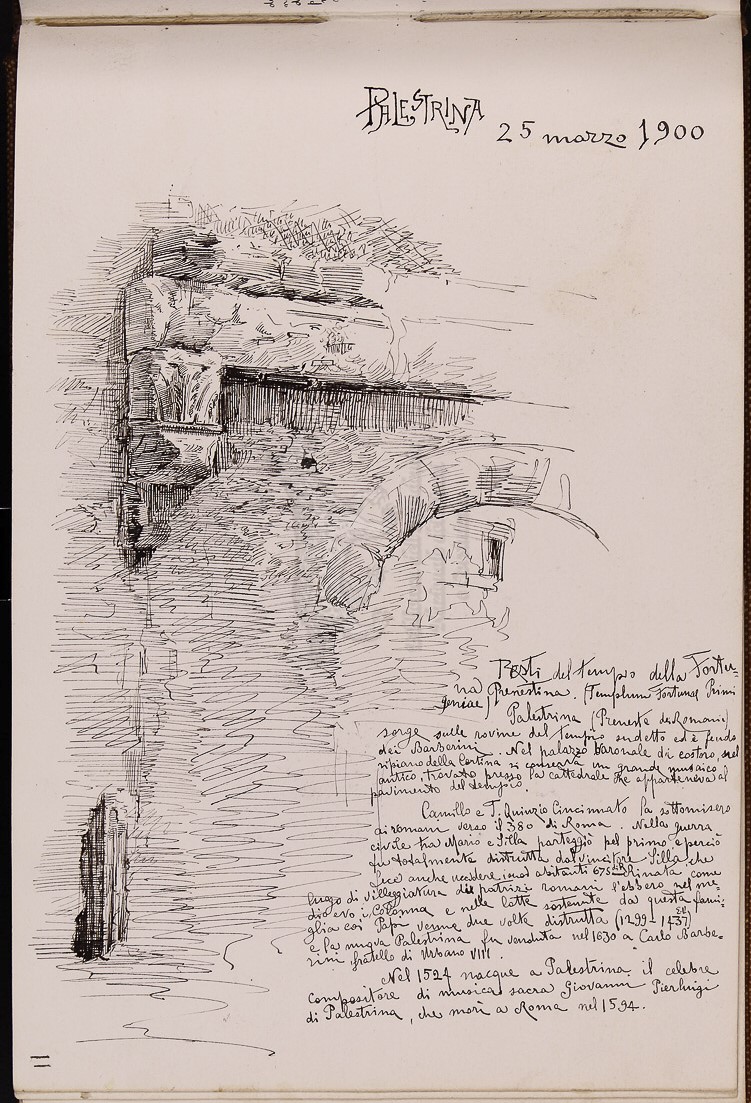 PALESTRINA
25 marzo 1900
Resti del tempio della Fortu-
na Prenestina. (Templum Fortunæ Primi
geniae)
Palestrina (Preneste dei Romani)
sorge sulle rovine del Tempio sudetto ed è feudo
dei Barberini. Nel palazzo baronale di costoro, sul
ripiano della Cortina si conserva un grande musaico
antico, trovato presso la cattedrale che apparteneva al
pavimento del tempio.
Camillo e T. Quinzio Cincinnato la sottomisero
ai romani verso il 380 di Roma. Nella guerra
civile tra Mario e Silla parteggiò pel primo e perciò
fu totalmente distrutta dal vincitore Silla che
fece anche uccidere i suoi abitanti 675. Rinata come
luogo di villeggiatura dei patrizi romani l'ebbero nel me-
dio evo i Colonna e nelle lotte sostenute da questa fami-
glia coi Papi venne due volte distrutta (1299-1437)
e la nuova Palestrina fu venduta nel 1630 a Carlo Barbe-
rini fratello di Urbano VIII.
Nel 1524 nacque a Palestrina il celebre
compositore di musica sacra Giovanni Pierluigi
di Palestrina, che morì a Roma nel 1594.